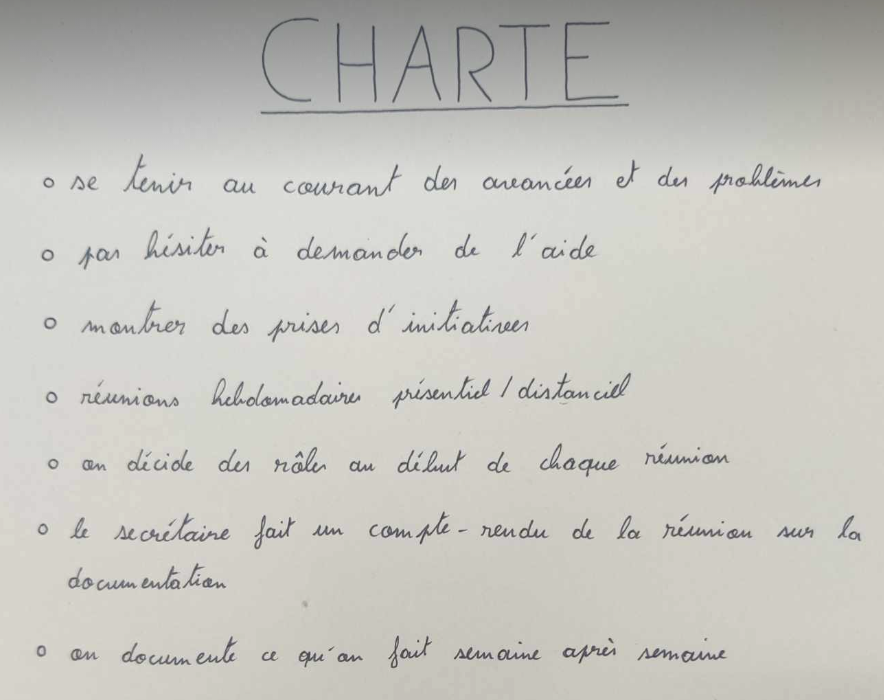 CHARTE
o se tenir au courant des avancées et des problèmes
o pas hésiter à demander de l'aide
o montrer des prises d'initiatives
o réunions hebdomadaires présentiel / distanciel
o on décide des rôles au début de chaque réunion
o le secrétaire fait un compte-rendu de la réunion sur la
documentation
o on documente ce qu'on fait semaine après semaine